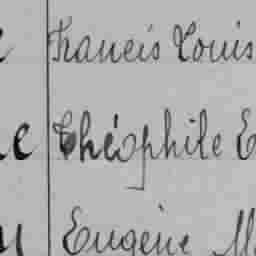 Francis Louis
Théophile E
Eugène M